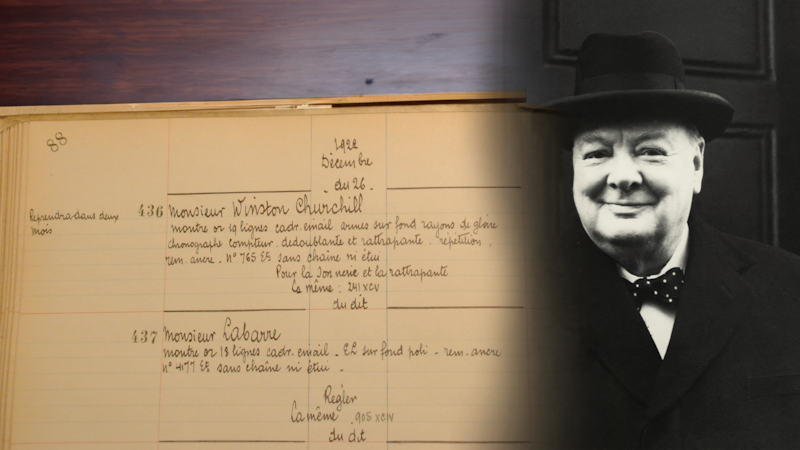 88
1922
Décembre
du 26.
Reprendra dans deux
mois
436 Monsieur Winston Churchill
montre or 19 lignes cadr. email armes sur fond rayons de gloire
chronographe compteur. dedoublante et rattrapante - repetition.
rem. ancre. N° 765 E5 sans chaîne ni étui
Pour la Sonnerie et la rattrapante
la même : 241 XCV
du dit
437 Monsieur Labarre
montre or 18 lignes cadr. email - EL sur fond poli - rem. ancre
N° 4177 E5 sans chaîne ni étui -
Regler
la même 905 XCIV
du dit